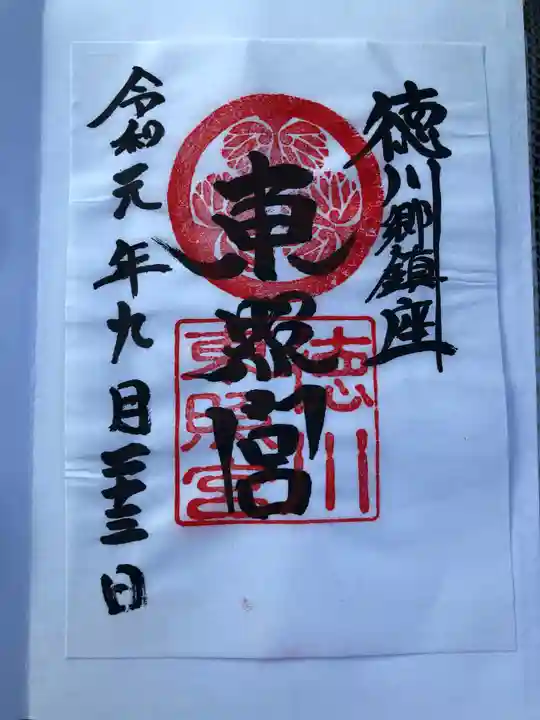 徳川郷鎮座
東照宮
徳川
東照宮
令和元年九月二十三日